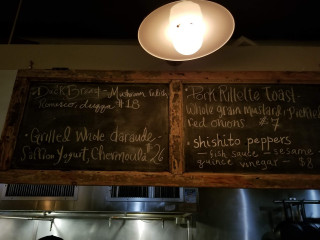 Duck Breast - Mushroom
Romesco, $18
· Grilled Whole daraude -
Saffron Yogurt, Chermoula $26
· Pork Rillette Toast -
Whole grain mustard, Pickled
red onions $7
· shishito peppers
- fish sauce - sesame -
quince vinegar - $8